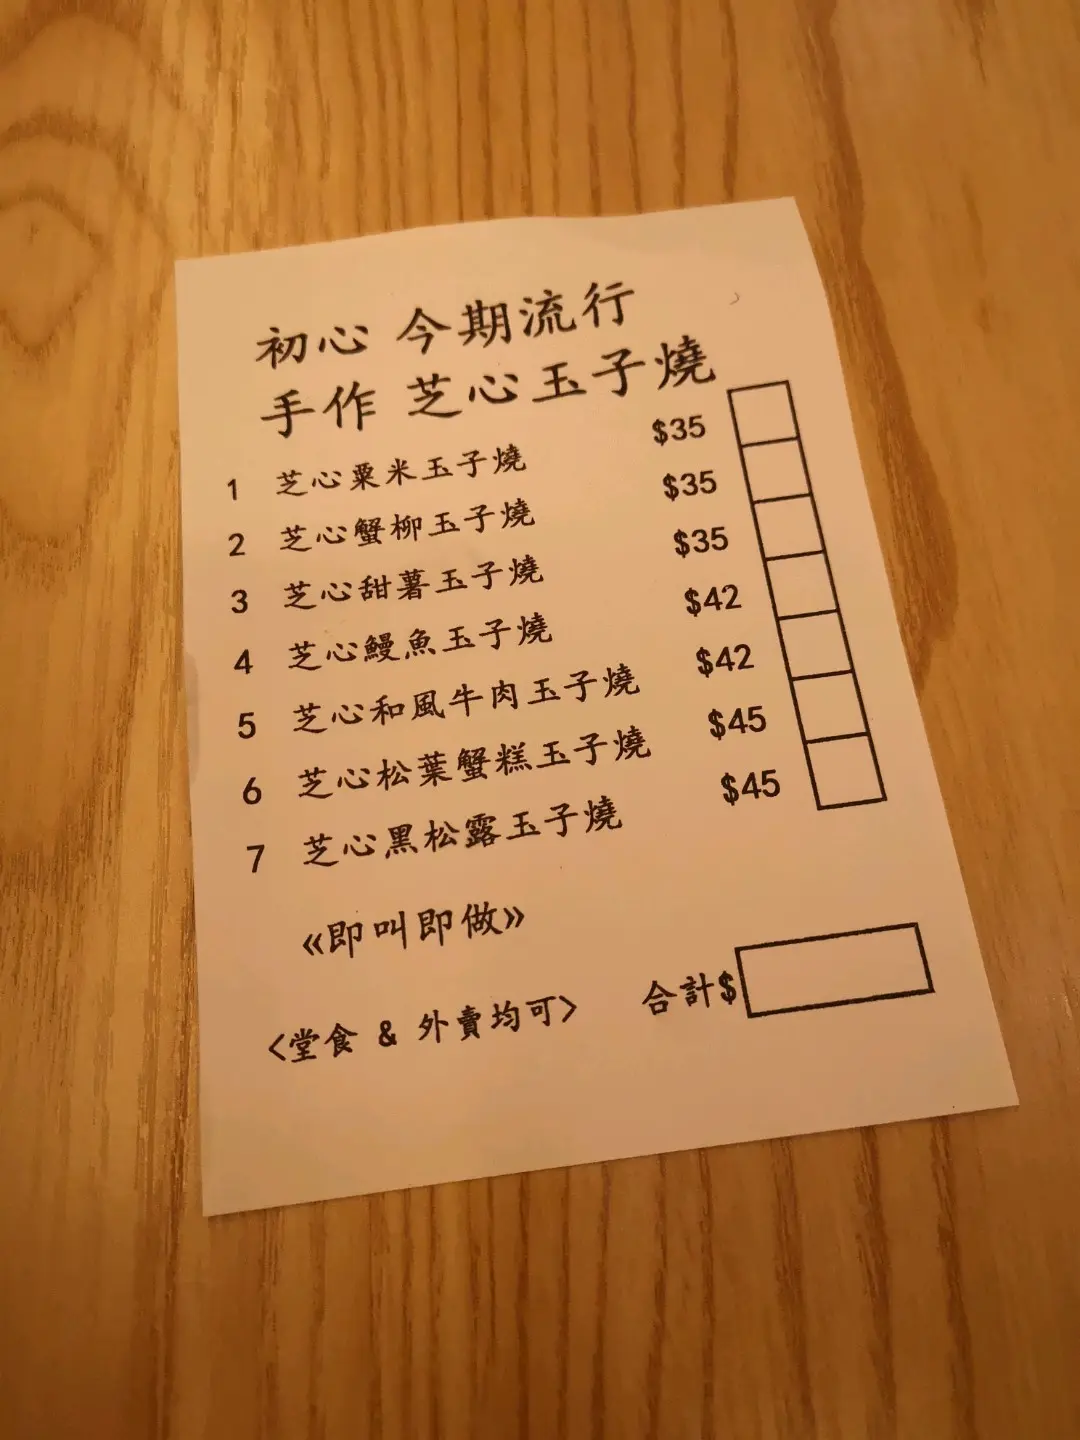 初心 今期流行
手作 芝心玉子燒
1 芝心粟米玉子燒 $35
2 芝心蟹柳玉子燒 $35
3 芝心甜薯玉子燒 $35
4 芝心鰻魚玉子燒 $42
5 芝心和風牛肉玉子燒 $42
6 芝心松葉蟹糕玉子燒 $45
7 芝心黑松露玉子燒 $45
《即叫即做》
<堂食 & 外賣均可> 合計$